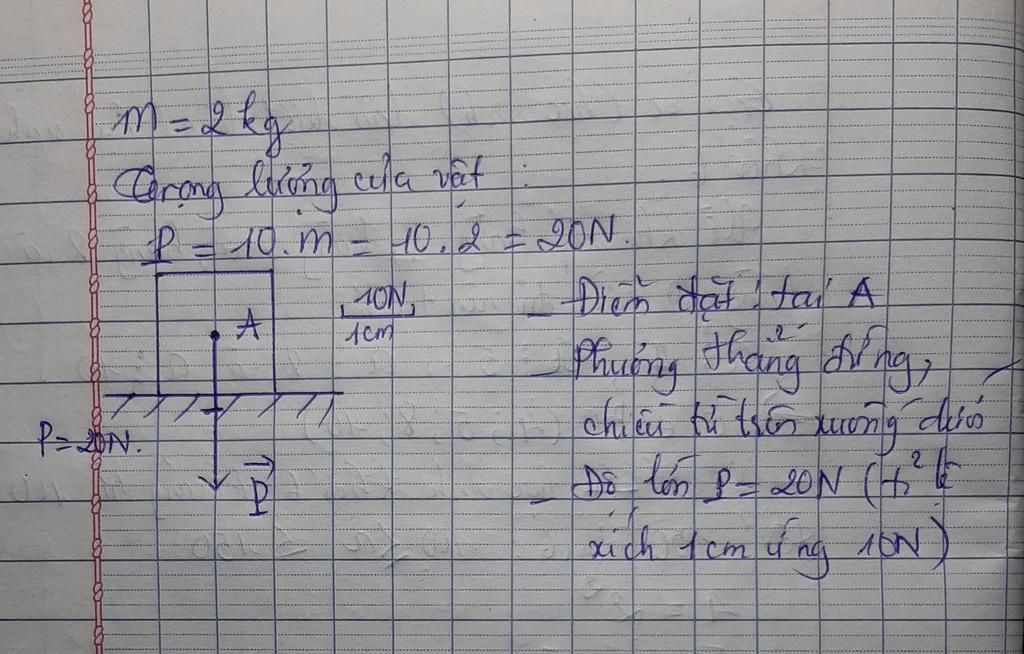 m = 2 kg
Trọng lượng của vật :
P = 10.m = 10.2 = 20N.
A
10N
1cm
P = 20N.
P
- Điểm đặt tại A
- Phương thẳng đứng,
chiều từ trên xuống dưới
- Độ lớn P = 20N (tỉ lệ
xích 1cm ứng 10N)